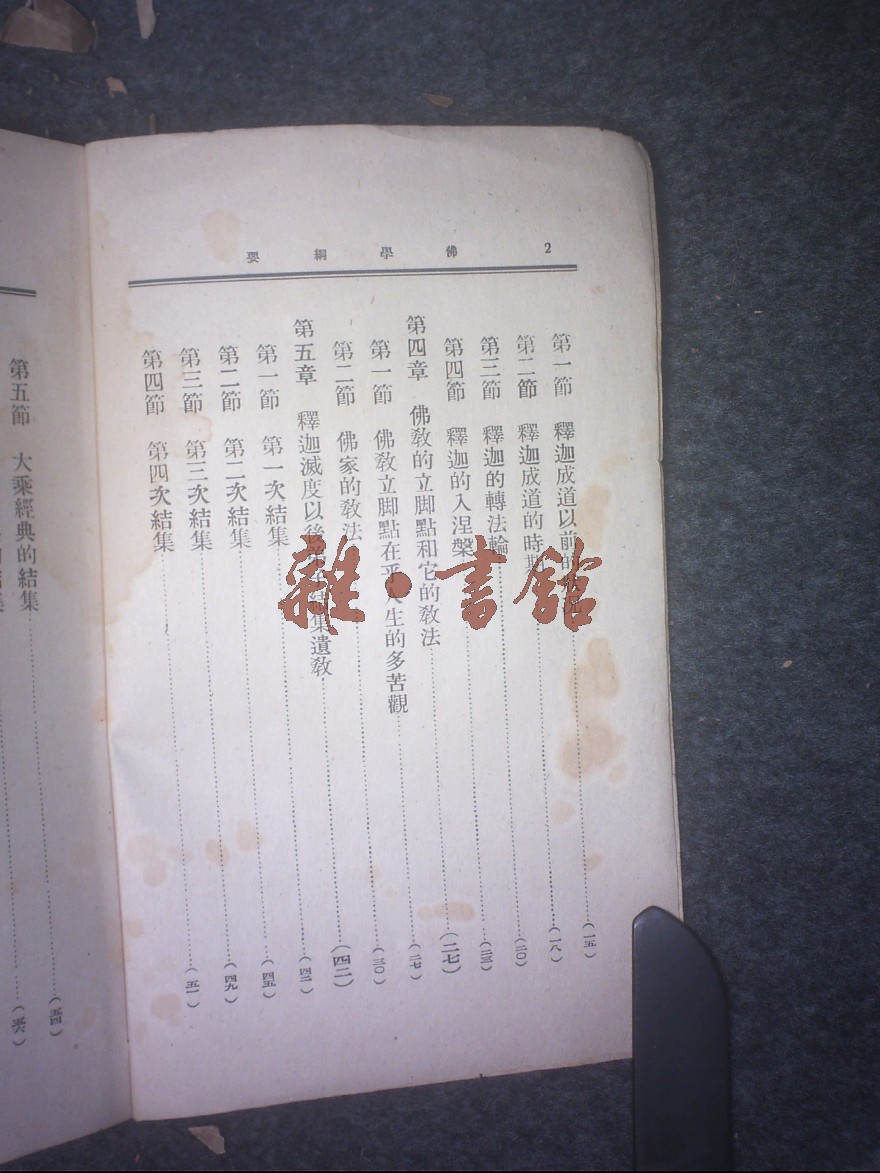 2 佛學綱要
第一節 釋迦成道以前的……(一五)
第二節 釋迦成道的時期……(一八)
第三節 釋迦的轉法輪……(二〇)
第四節 釋迦的入涅槃……(二三)
第四章 佛教的立脚點和它的教法……(二七)
第一節 佛教立脚點在乎人生的多苦觀……(二七)
第二節 佛家的教法……(三〇)
第五章 釋迦滅度以後弟子結集遺教……(四二)
第一節 第一次結集……(四二)
第二節 第二次結集……(四五)
第三節 第三次結集……(四九)
第四節 第四次結集……(五一)
第五節 大乘經典的結集……(五四)
結集……(五六)
雜·書館